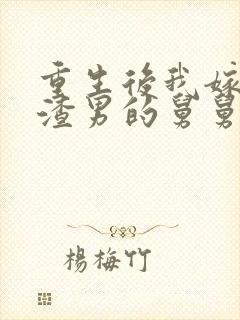 重生後我嫁
渣男的舅舅
楊梅竹